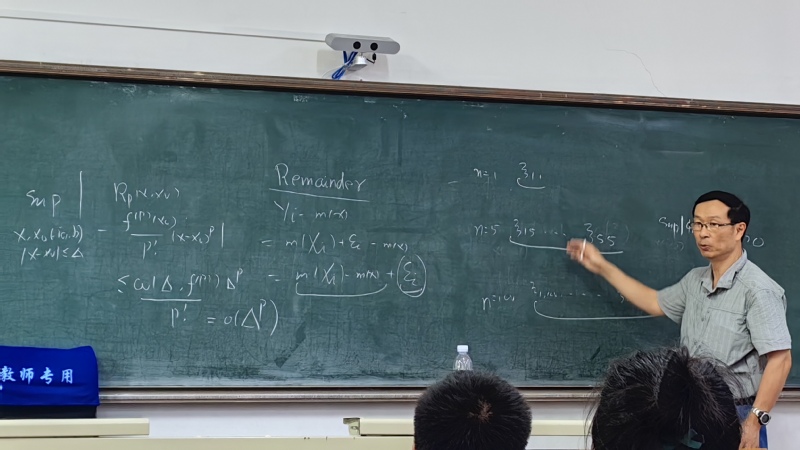 Sup | Rp(x,x₀)
x,x₀∈(a,b)
|x-x₀|≤Δ
- f⁽ᵖ⁾(x₀)/p! (x-x₀)ᵖ |
≤ ω(Δ, f⁽ᵖ⁾) Δᵖ / p! = o(Δᵖ)
Remainder
Yi - m(x)
= m(Xi) + εi - m(x)
= m(Xi) - m(x) + εi
n=1 ξ11
n=5 ξ15 ..... ξ55
n=100 ξ1,100 ......
Sup
教师专用